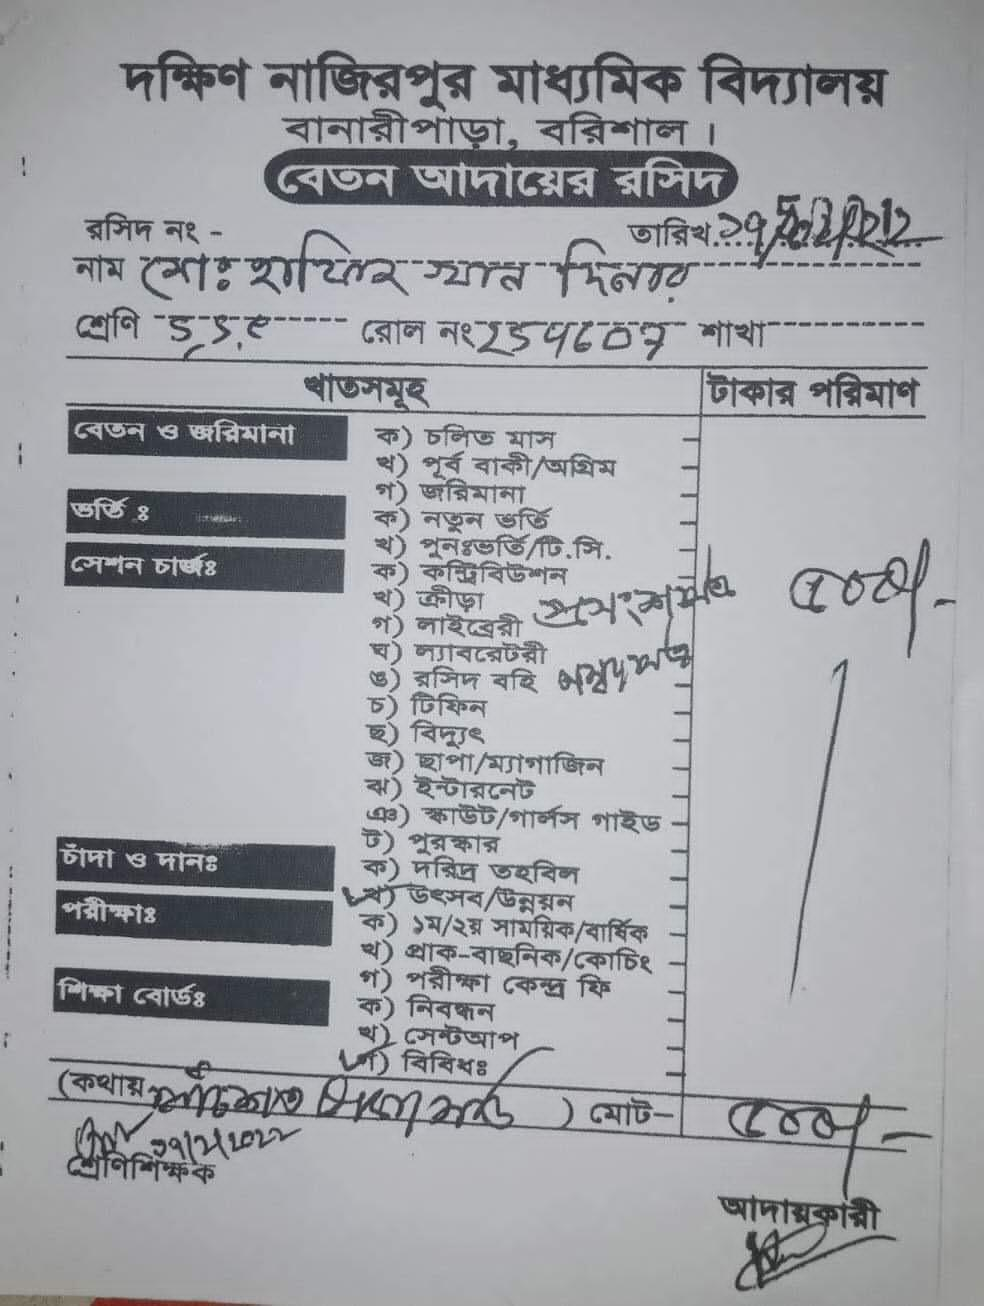 দক্ষিণ নাজিরপুর মাধ্যমিক বিদ্যালয়
বানারীপাড়া, বরিশাল।
বেতন আদায়ের রসিদ
রসিদ নং - তারিখ
নাম মোঃ হাফিজ খান দিনার
শ্রেণি রোল নং শাখা
খাতসমূহ টাকার পরিমাণ
বেতন ও জরিমানা ক) চলিত মাস
খ) পূর্ব বাকী/অগ্রিম
গ) জরিমানা
ভর্তি ঃ ক) নতুন ভর্তি
খ) পুনঃভর্তি/টি.সি.
সেশন চার্জঃ ক) কন্ট্রিবিউশন
খ) ক্রীড়া প্রসংশাপত্র ৫০০/-
গ) লাইব্রেরী
ঘ) ল্যাবরেটরী
ঙ) রসিদ বহি
চ) টিফিন
ছ) বিদ্যুৎ
জ) ছাপা/ম্যাগাজিন
ঝ) ইন্টারনেট
ঞ) স্কাউট/গার্লস গাইড
ট) পুরস্কার
চাঁদা ও দানঃ ক) দরিদ্র তহবিল
খ) উৎসব/উন্নয়ন
পরীক্ষাঃ ক) ১ম/২য় সাময়িক/বার্ষিক
খ) প্রাক-বাছনিক/কোচিং
গ) পরীক্ষা কেন্দ্র ফি
শিক্ষা বোর্ডঃ ক) নিবন্ধন
খ) সেন্টআপ
গ) বিবিধঃ
(কথায় পাঁচশত টাকা মাত্র ) মোট- ৫০০/-
শ্রেণিশিক্ষক
আদায়কারী